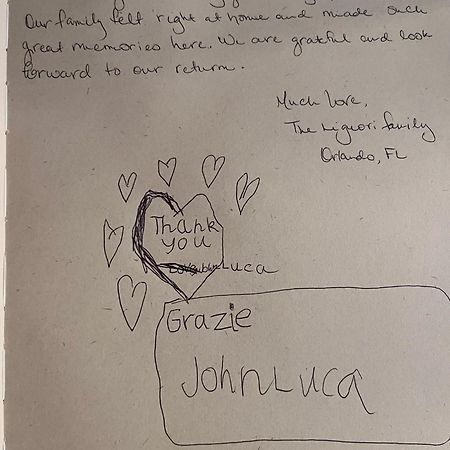 Our family felt right at home and made such
great memories here. We are grateful and look
forward to our return.
Much love,
The Liguori family
Orlando, FL
Thank
you
Luca
Grazie
JohnLuca